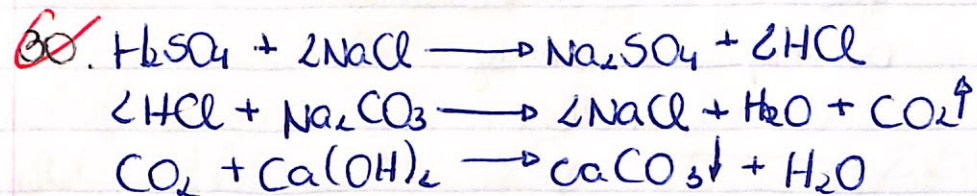 30. H₂SO₄ + 2NaCl ⟶ Na₂SO₄ + 2HCl
2HCl + Na₂CO₃ ⟶ 2NaCl + H₂O + CO₂↑
CO₂ + Ca(OH)₂ ⟶ CaCO₃↓ + H₂O